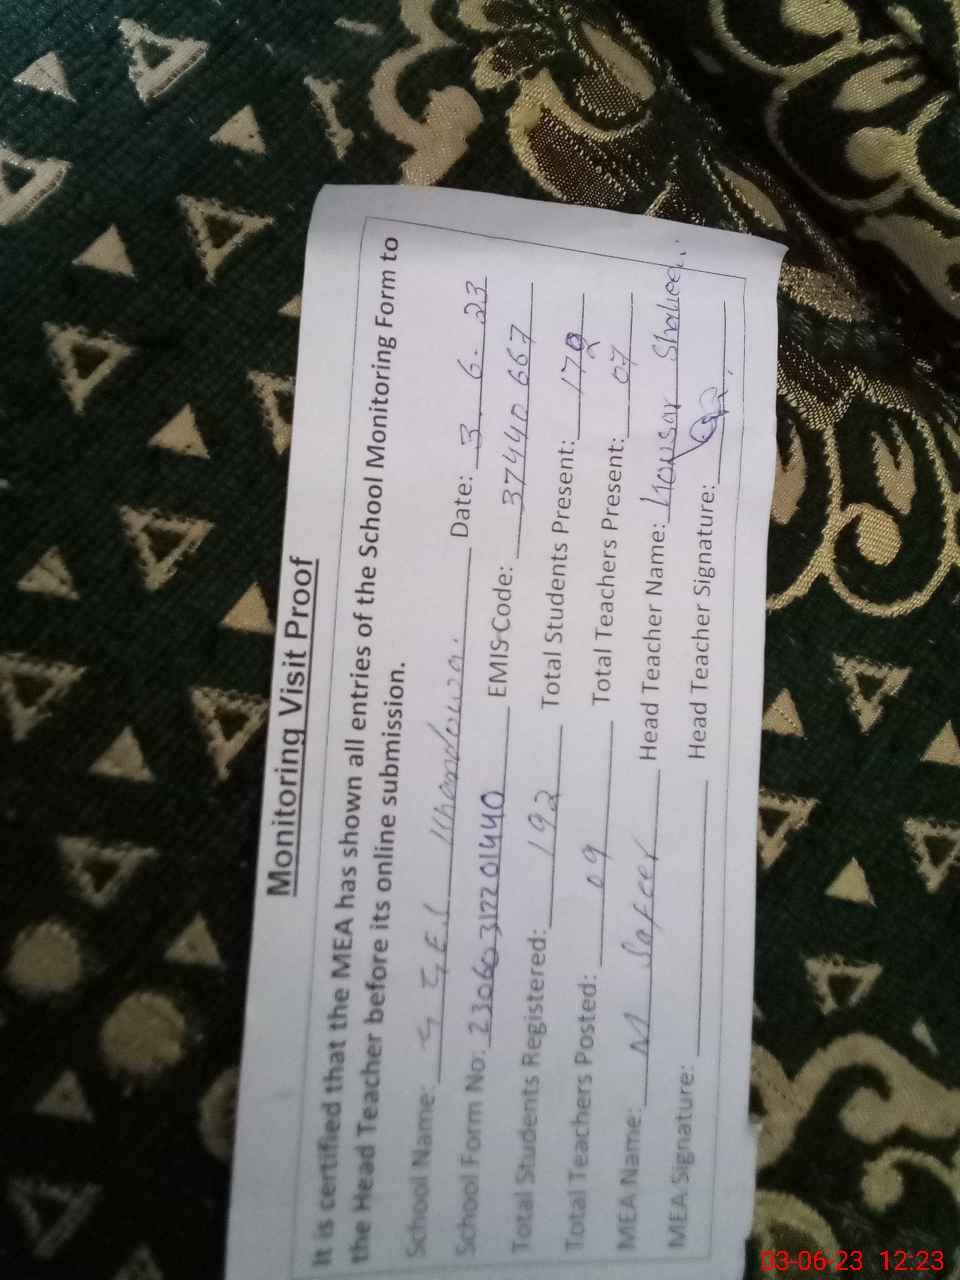 Monitoring Visit Proof
It is certified that the MEA has shown all entries of the School Monitoring Form to
the Head Teacher before its online submission.
School Name: G G E S Khandowa. Date: 3. 6. 23
School Form No: 23060312201440 EMIS Code: 37440667
Total Students Registered: 192 Total Students Present: 179
Total Teachers Posted: 09 Total Teachers Present: 07
MEA Name: M Safeer Head Teacher Name: Kousar Shaheen.
MEA Signature: Head Teacher Signature:
03-06-23 12:23